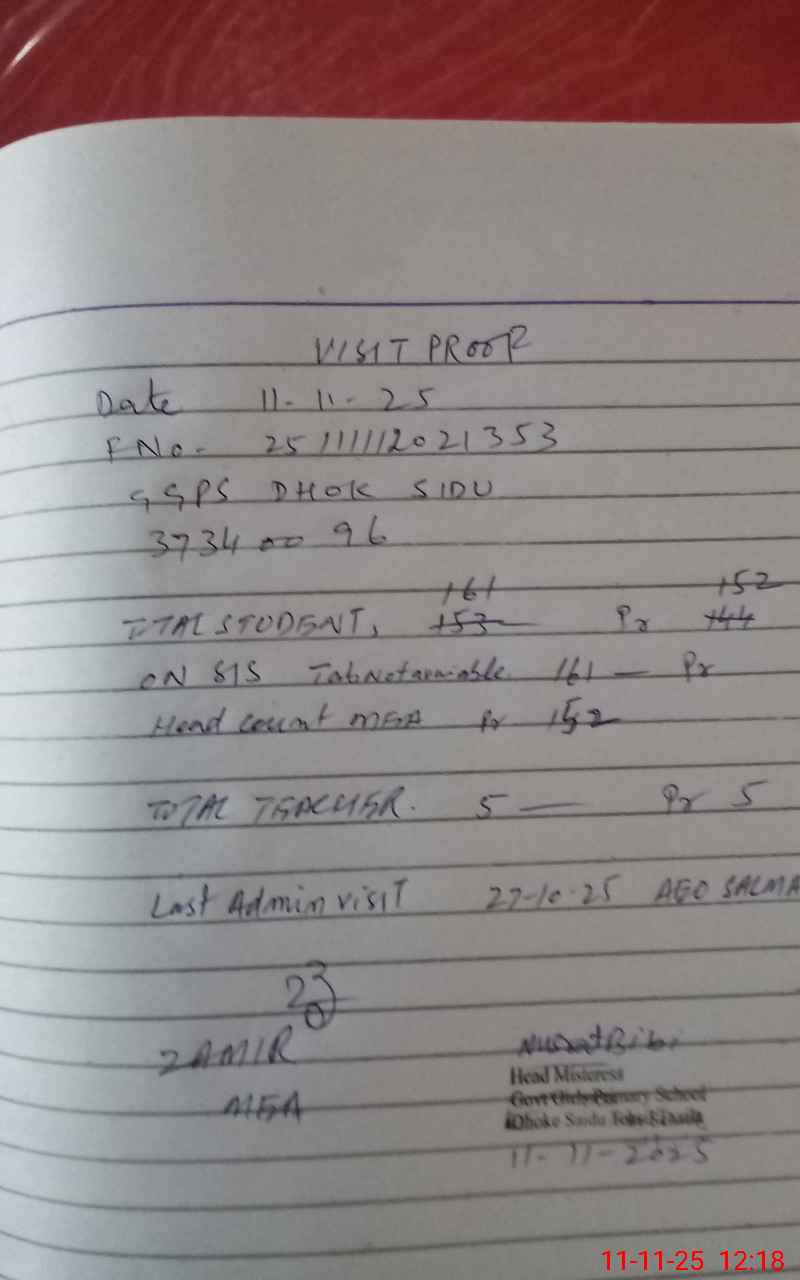 VISIT PROOF
Date 11-11-25
F No- 251111112021353
GGPS DHOK SIDU
37340096
161 152
TOTAL STUDENT, 153 Pr 144
ON SIS Tab Not available 161 — Pr
Head count MEA Pr 152
TOTAL TEACHER. 5 — Pr 5
Last Admin visit 27-10-25 AEO SALMA
ZAMIR
MEA
Nusrat Bibi
Head Mistress
Govt Girls Primary School
Dhoke Saidu
11-11-2025
11-11-25 12:18